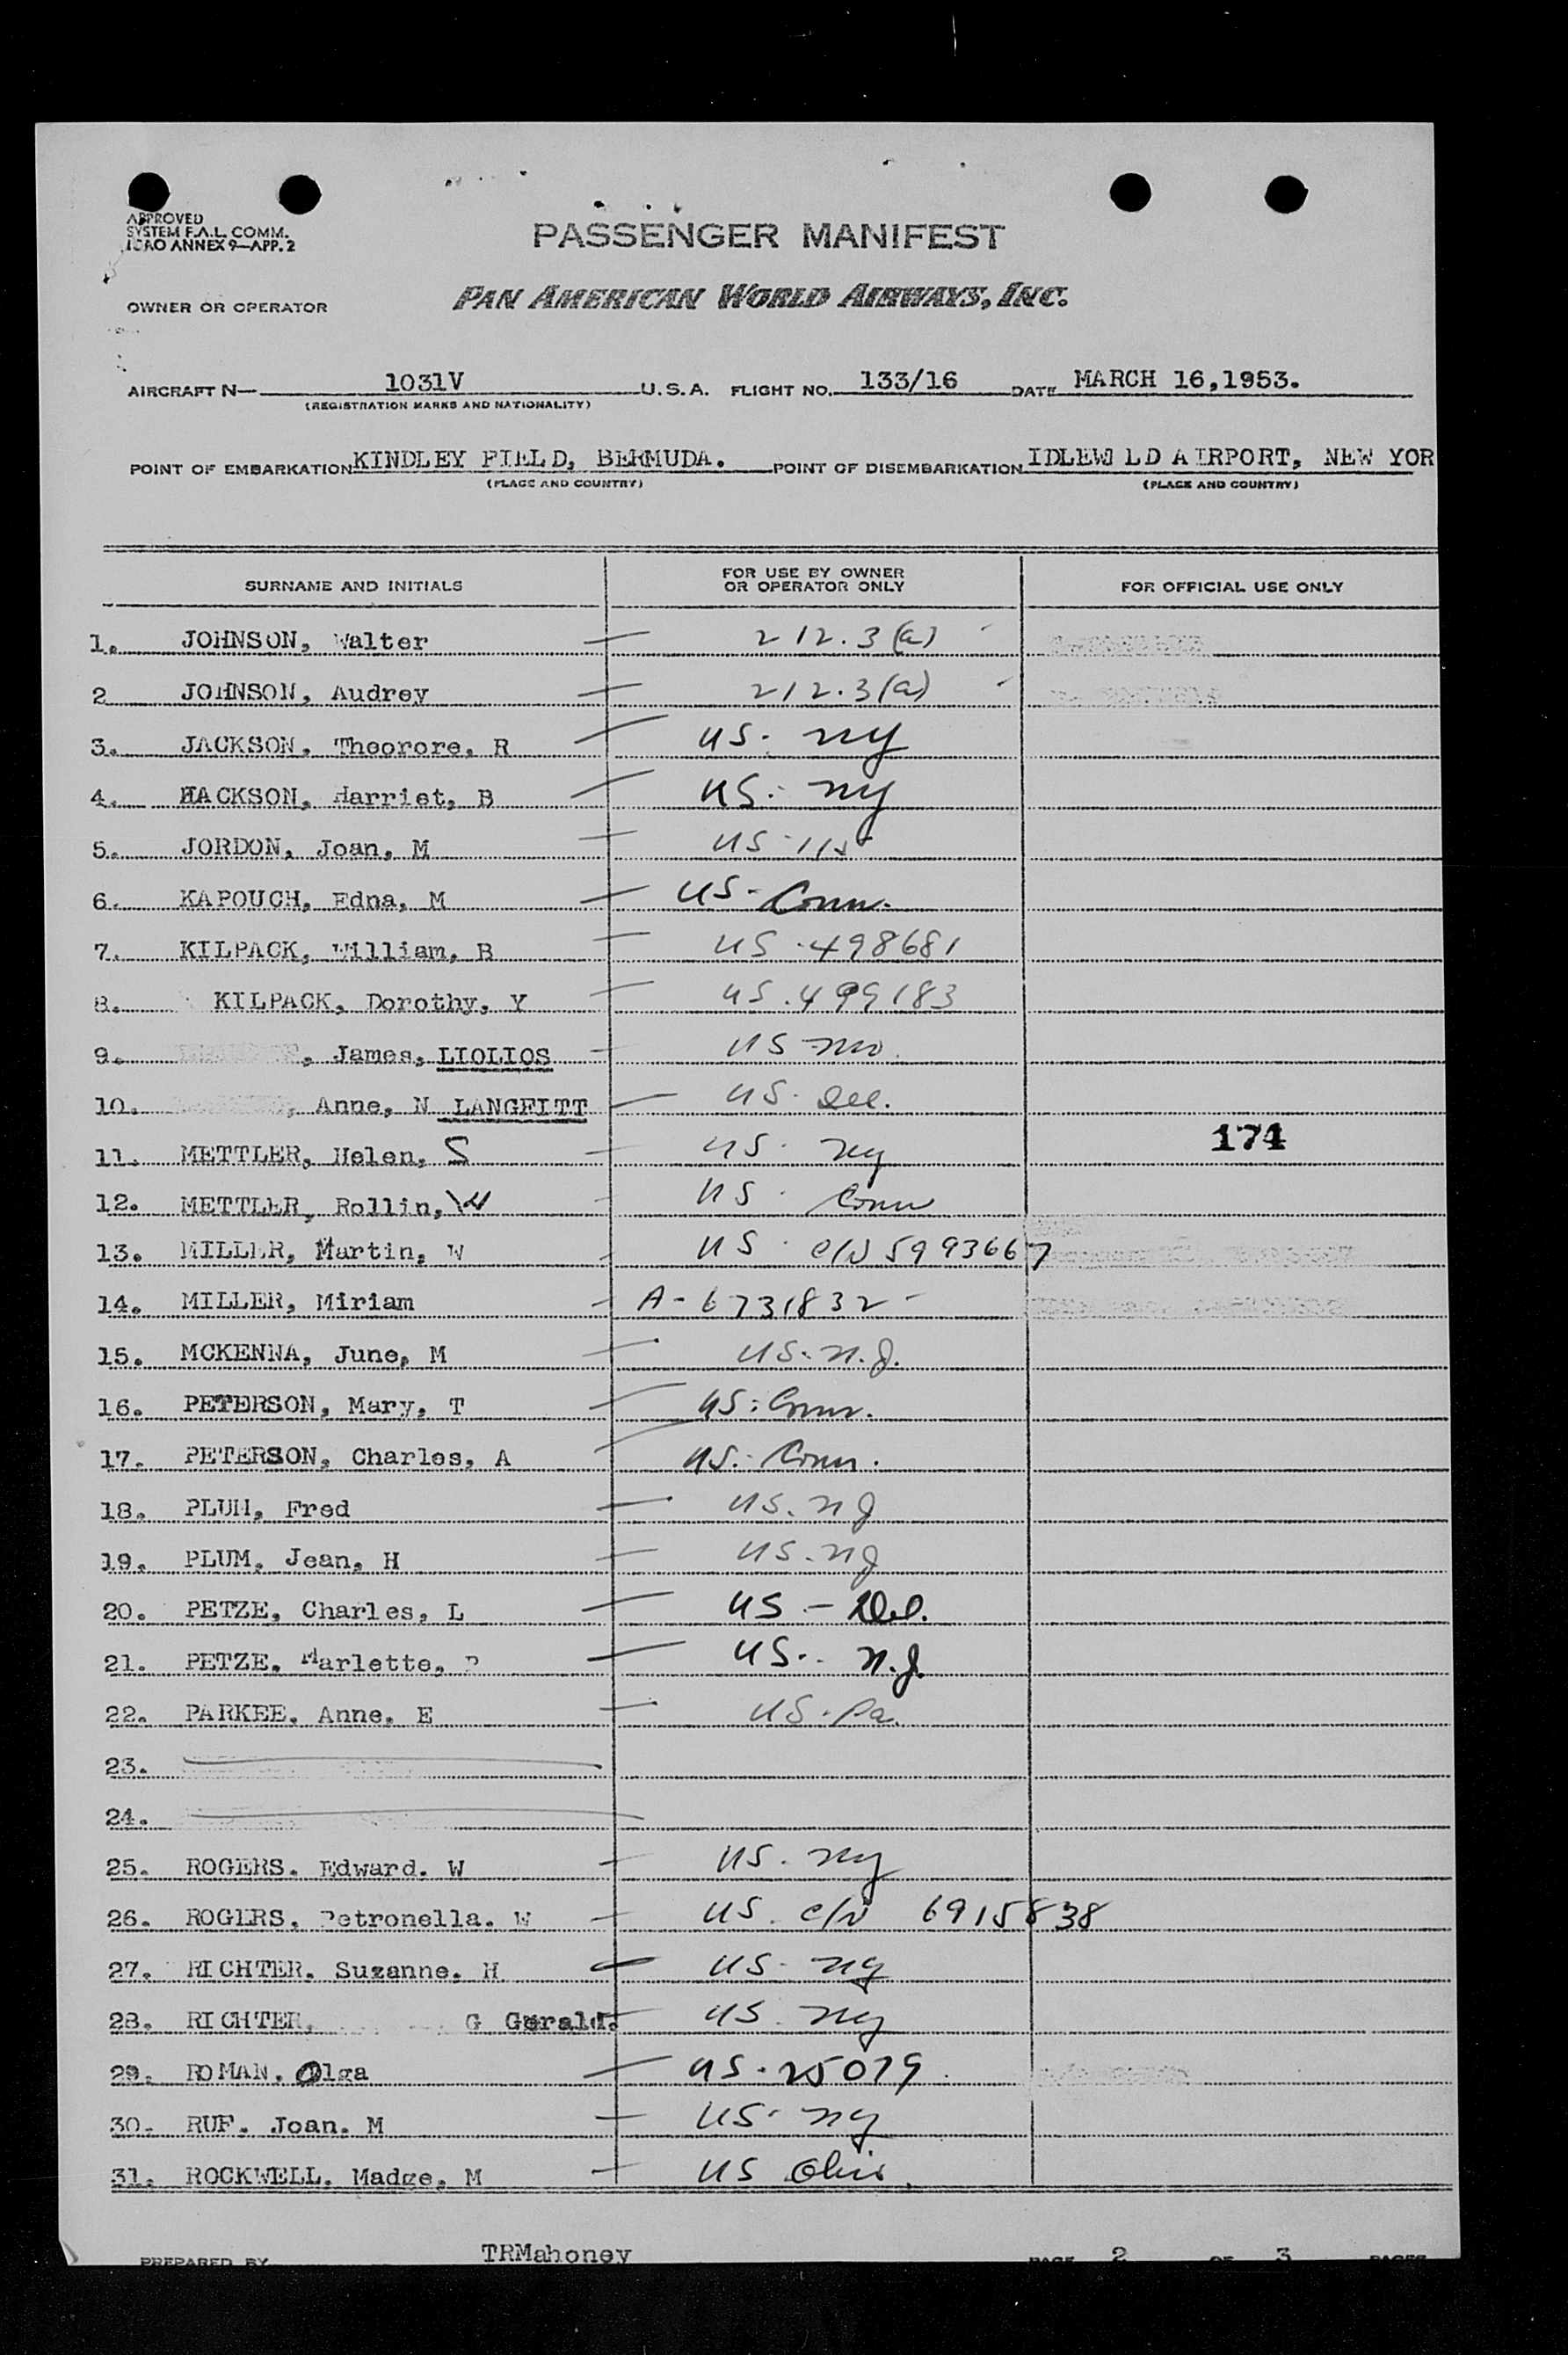 APPROVED
SYSTEM F.A.L. COMM.
ICAO ANNEX 9—APP. 2
PASSENGER MANIFEST
OWNER OR OPERATOR PAN AMERICAN WORLD AIRWAYS, INC.
AIRCRAFT N— 1031V U.S.A. FLIGHT NO. 133/16 DATE MARCH 16,1953.
(REGISTRATION MARKS AND NATIONALITY)
POINT OF EMBARKATION KINDLEY FIELD, BERMUDA. POINT OF DISEMBARKATION IDLEWILD AIRPORT, NEW YOR
(PLACE AND COUNTRY) (PLACE AND COUNTRY)
SURNAME AND INITIALS FOR USE BY OWNER OR OPERATOR ONLY FOR OFFICIAL USE ONLY
1. JOHNSON, Walter — 212.3(a)
2 JOHNSON, Audrey — 212.3(a)
3. JACKSON, Theorore, R — US. NY
4. HACKSON, Harriet, B — US. NY
5. JORDON, Joan, M — US
6. KAPOUCH, Edna, M — US- Conn.
7. KILPACK, William, B — US. 498681
8. KILPACK, Dorothy, Y — US. 499183
9. , James, LIOLIOS — US-Mo.
10. , Anne, N LANGFITT — US. Del.
11. METTLER, Helen, S — US. NY 174
12. METTLER, Rollin, W — US. Conn
13. MILLER, Martin, W — US. C/N 5993667
14. MILLER, Miriam — A-6731832
15. MCKENNA, June, M — US. N.J.
16. PETERSON, Mary, T — US. Conn.
17. PETERSON, Charles, A — US. Conn.
18. PLUM, Fred — US. NJ
19. PLUM, Jean, H — US. NJ
20. PETZE, Charles, L — US - Del.
21. PETZE, Marlette, P — US. N.J.
22. PARKEE. Anne. E — US. Pa.
23.
24.
25. ROGERS. Edward. W — US. NY
26. ROGERS. Petronella. W — US. C/N 6915838
27. RICHTER. Suzanne. H — US. NY
28. RICHTER, G Gerald. — US. NY
29. ROMAN. Olga — US. 25079
30. RUF. Joan. M — US. NY
31. ROCKWELL. Madge, M — US Ohio.
PREPARED BY TRMahoney PAGE 2 OF 3 PAGES